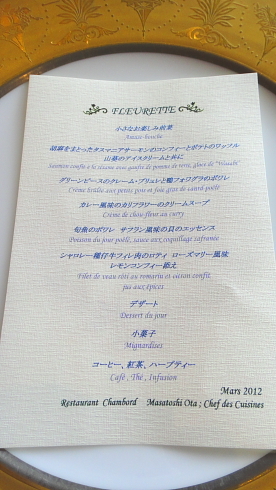 FLEURETTE
小さなお楽しみ前菜
Amuse-bouche
胡麻をまとったタスマニアサーモンのコンフィーとポテトのワッフル
山葵のアイスクリームと共に
Saumon confit à la sésame avec gaufre de pomme de terre, glace de "Wasabi"
グリーンピースのクレーム・ブリュレと鴨フォワグラのポワレ
Crème brûlée aux petits pois et foie gras de canard poêlé
カレー風味のカリフラワーのクリームスープ
Crème de chou-fleur au curry
旬魚のポワレ サフラン風味の貝のエッセンス
Poisson du jour poêlé, sauce aux coquillage safranée
シャロレー種仔牛フィレ肉のロティ ローズマリー風味
レモンコンフィー添え
Filet de veau rôti au romarin et citron confit,
jus aux épices
デザート
Dessert du jour
小菓子
Mignardises
コーヒー、紅茶、ハーブティー
Café, Thé, Infusion
Mars 2012
Restaurant Chambord Masatoshi Ota ; Chef des Cuisines